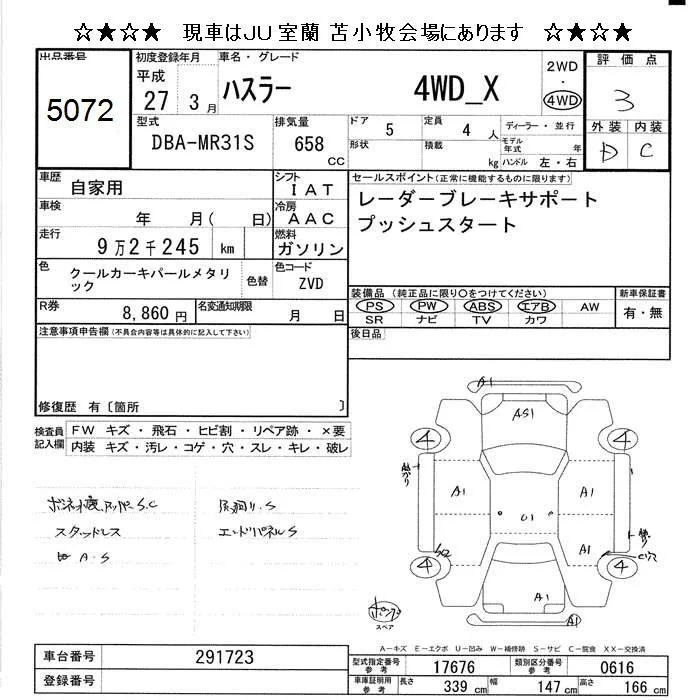 ☆★☆★ 現車はJU室蘭 苫小牧会場にあります ☆★☆★
出品番号
5072
初度登録年月
平成
27 3 月
車名・グレード
ハスラー 4WD_X
2WD
・
4WD
評価点
3
外装 内装
D C
型式
DBA-MR31S
排気量
658
CC
ドア 5
定員 4 人
形状
積載 kg
ディーラー・並行
モデル年式 年
ハンドル 左・右
車歴
自家用
シフト
IAT
車検
年 月( 日)
冷房
AAC
走行
9万2千245 km
燃料
ガソリン
色
クールカーキパールメタリ
ック
色替
色コード
ZVD
R券
8,860 円
名変通知期限
月 日
セールスポイント(正常に機能するものに限ります)
レーダーブレーキサポート
プッシュスタート
装備品(純正品に限り〇をつけてください)
PS PW ABS エアB AW
SR ナビ TV カワ
新車保証書
有・無
後日品
注意事項申告欄(不具合内容等は具体的に記入して下さい)
修復歴 有〔箇所 〕
検査員
記入欄
FW キズ・飛石・ヒビ割・リペア跡・×要
内装 キズ・汚レ・コゲ・穴・スレ・キレ・破レ
S.C
スタッドレス
A.S
S
エンドパネルS
A1
AS1
4
4
A1
U1
A1
A1
S2
4
4
A1
A1
スペア
A-キズ E-エクボ U-凹み W-補修跡 S-サビ C-腐食 XX-交換済
車台番号
291723
登録番号
型式指定番号
参考
17676
類別区分番号
参考
0616
車庫証明用
参考
長さ 339 cm
幅 147 cm
高さ 166 cm